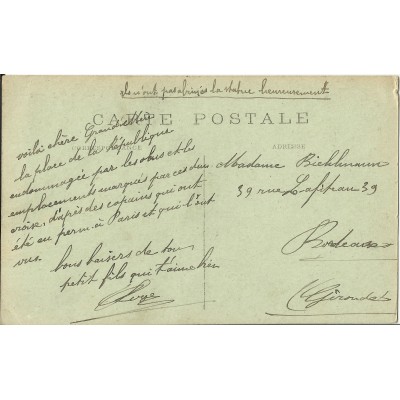 ils n'ont pas abîmés la statue heureusement
CARTE POSTALE
CORRESPONDANCE
ADRESSE
voilà chère Grand mère
la place de la République
endommagée par les obus et les
emplacements marqués par ces deux
croix, d'après des copains qui ont
été en perm à Paris et qui l'ont
vue.
bons baisers de ton
petit fils qui t'aime bien
Madame
39 rue 39
Bordeaux
(Gironde)